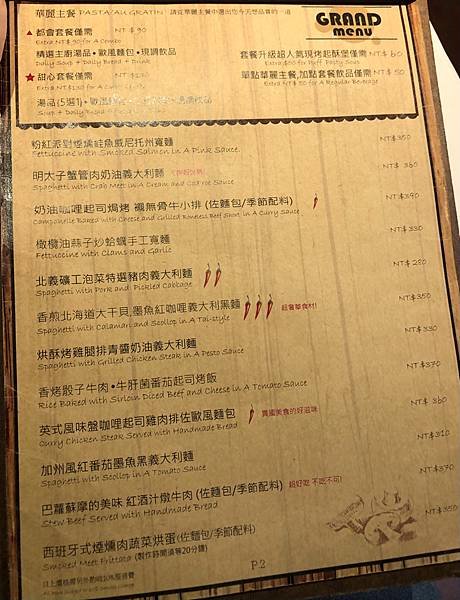 華麗主餐 PASTA/AU GRATIN
GRAND
menu
▲都會套餐僅需 NT$ 90
Extra NT$ 90 for A Combo
精選主廚湯品•歐風麵包•現調飲品
Soup + Daily Bread + Drink
★甜心套餐僅需
湯品(5選1)
套餐升級超人氣現烤起酥堡僅需NT$ 60
Extra $60 for Puff Pasty Soup
單點華麗主餐,加點套餐飲品僅需NT$ 50
Extra NT$ 50 for A Regular Beverage
粉紅派對煙燻鮭魚威尼托州寬麵 NT$350
Fettuccine with Smoked Salmon in A Pink Sauce
明太子蟹管肉奶油義大利麵 NT$ 360
Spaghetti with Crab Meat in A Cream and Cod roe Sauce
奶油咖哩起司焗烤 襯無骨牛小排 (佐麵包/季節配料) NT$390
Campanelle Baked with Cheese and Grilled Boneless Beef Short in A Curry Sauce
橄欖油蒜子炒蛤蠣手工寬麵 NT$330
Fettuccine with Clams and Garlic
北義礦工泡菜特選豬肉義大利麵 NT$ 280
Spaghetti with Pork and Pickled Cabbage
香煎北海道大干貝,墨魚紅咖哩義大利黑麵 超奢華食材! NT$350
Spaghetti with Calamari and Scollop in A Tai-style
烘酥烤雞腿排青醬奶油義大利麵 NT$330
Spaghetti with Grilled Chicken Steak in A Pesto Sauce
香烤骰子牛肉•牛肝菌番茄起司烤飯 NT$370
Rice Baked with Sirloin Diced Beef and Cheese in A Tomato Sauce
英式風味盤咖哩起司雞肉排佐歐風麵包 異國美食的好滋味 NT$ 360
Curry Chicken Steak Served with Handmade Bread
加州風紅番茄墨魚黑義大利麵 NT$310
Spaghetti with Scollop in A Tomato Sauce
巴蘿蘇摩的美味 紅酒汁燉牛肉 (佐麵包/季節配料) 超好吃 不吃不可! NT$370
Stew Beef Served with Handmade Bread
西班牙式煙燻肉蔬菜烘蛋(佐麵包/季節配料) NT$350
Smoked Meet Frittata (製作時間須等20分鐘)
P.2